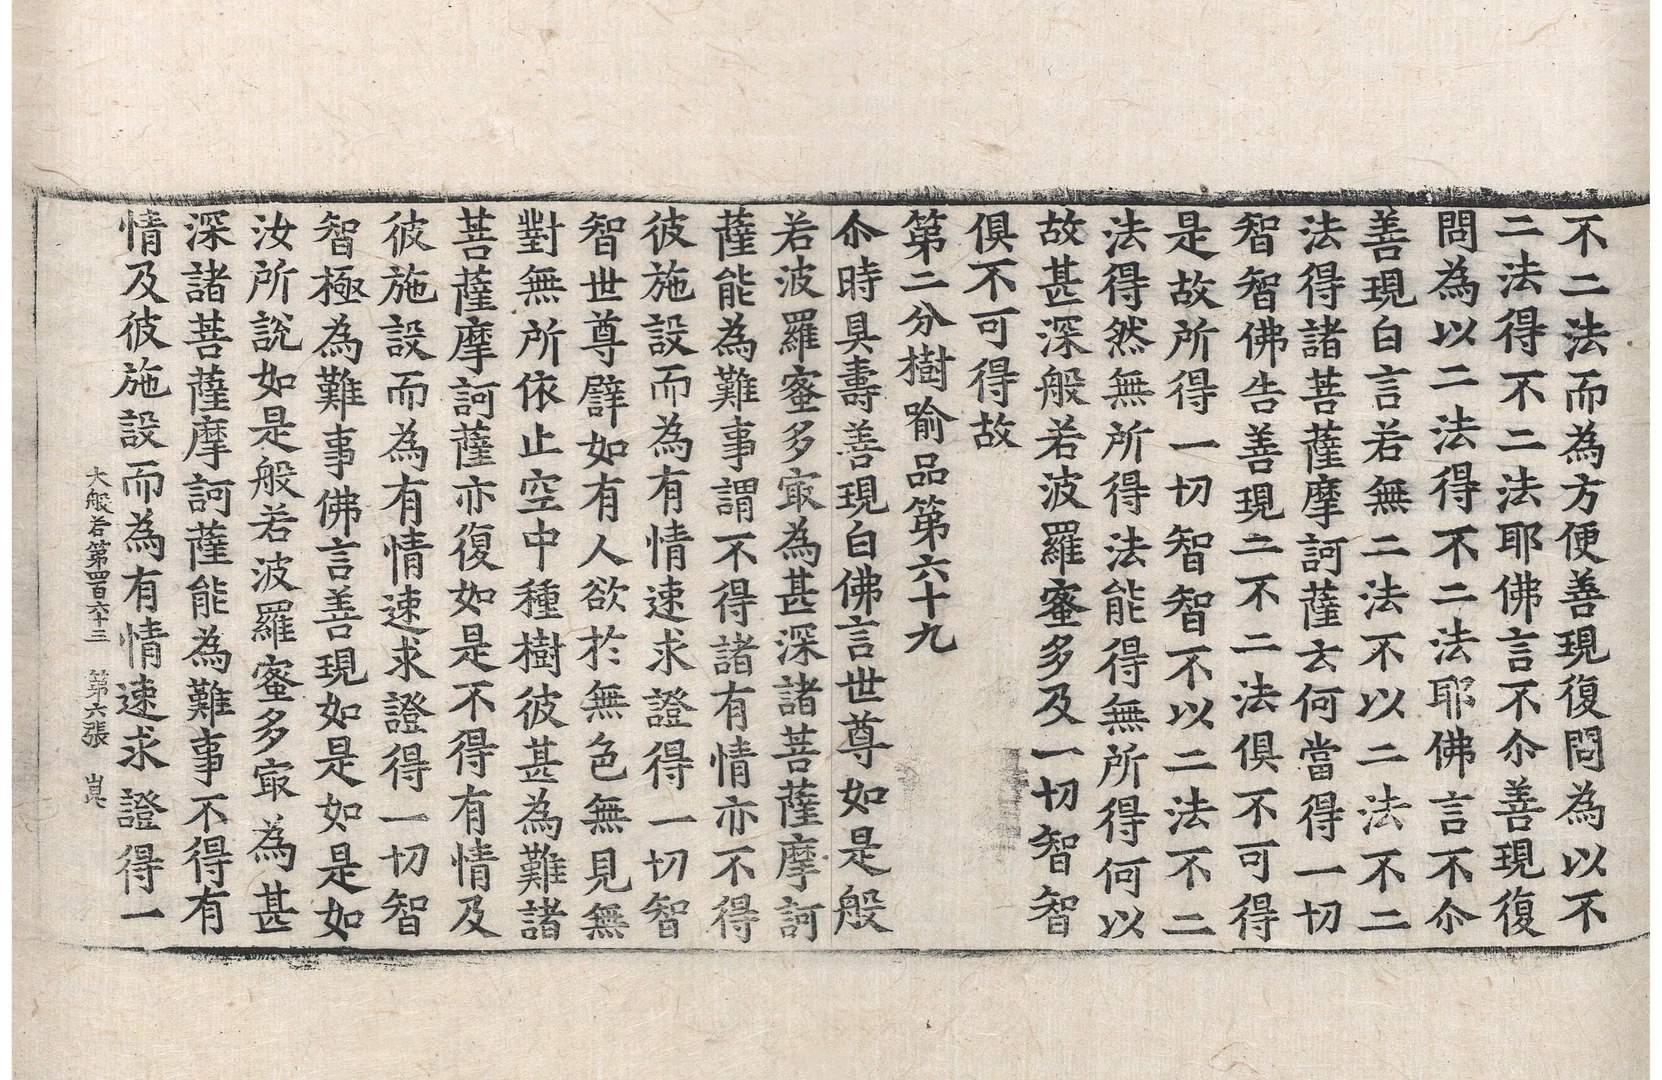 不二法而為方便善現復問為以不
二法得不二法耶佛言不尒善現復
問為以二法得不二法耶佛言不尒
善現白言若無二法不以二法不二
法得諸菩薩摩訶薩云何當得一切
智智佛告善現二不二法俱不可得
是故所得一切智智不以二法不二
法得然無所得法能得無所得何以
故甚深般若波羅蜜多及一切智智
俱不可得故
第二分樹喻品第六十九
尒時具壽善現白佛言世尊如是般
若波羅蜜多㝡為甚深諸菩薩摩訶
薩能為難事謂不得諸有情亦不得
彼施設而為有情速求證得一切智
智世尊譬如有人欲於無色無見無
對無所依止空中種樹彼甚為難諸
菩薩摩訶薩亦復如是不得有情及
彼施設而為有情速求證得一切智
智極為難事佛言善現如是如是如
汝所說如是般若波羅蜜多㝡為甚
深諸菩薩摩訶薩能為難事不得有
情及彼施設而為有情速求證得一
大般若第四百六十三 第六張 崑